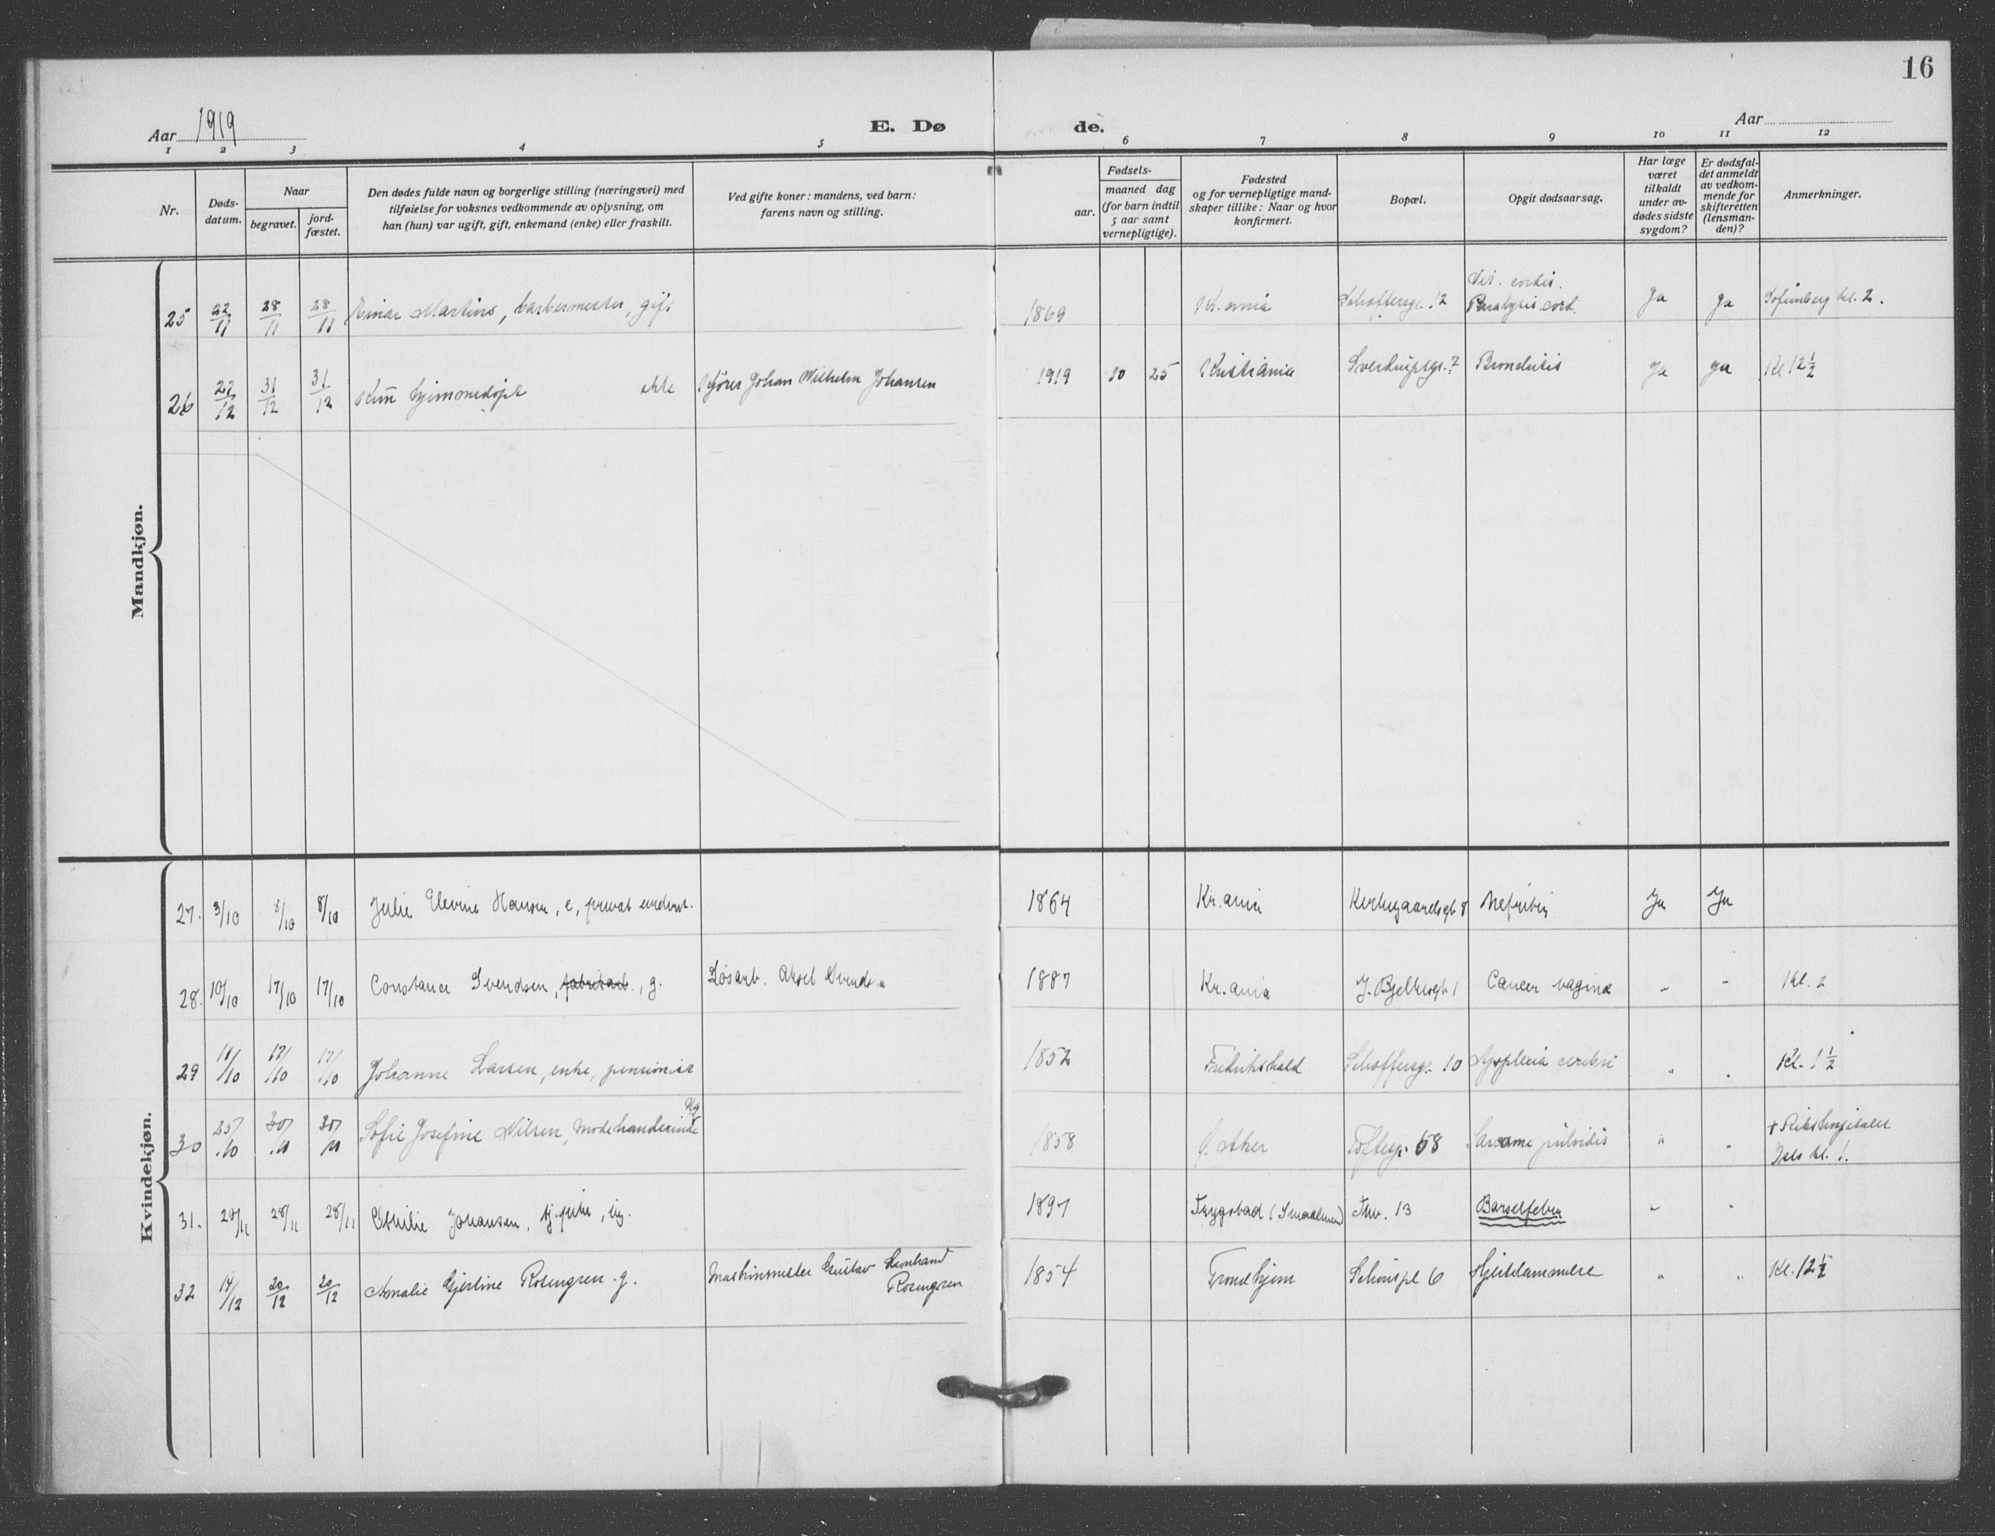 16
Aar 1919 E. Dø de. Aar
1 2 3 4 5 6 7 8 9 10 11 12
Nr.
Døds-
datum.
Naar
begravet.
jord-
fæstet.
Den dødes fulde navn og borgerlige stilling (næringsvei) med
tilføielse for voksnes vedkommende av oplysning, om
han (hun) var ugift, gift, enkemand (enke) eller fraskilt.
Ved gifte koner: mandens, ved barn:
farens navn og stilling.
Fødsels-
aar.
maaned dag
(for barn indtil
5 aar samt
vernepligtige).
Fødested
og for vernepligtige mand-
skaper tillike: Naar og hvor
konfirmert.
Bopæl.
Opgit dødsaarsag.
Har læge
været
tilkaldt
under av-
dødes sidste
sygdom?
Er dødsfal-
det anmeldt
av vedkom-
mende for
skifteretten
(lensman-
den)?
Anmerkninger.
Mandkjøn.
25 22/11 28/11 28/11 Einar Martins, barbermester, gift 1869 Kr.ania Schaffersg. 12 Vit. cordis. Paralysis cord. Ja Ja Sofienberg kl. 2.
26 27/12 31/12 31/12 hjemmedøpt ekte Johan Wilhelm Johansen 1919 10 25 Kristiania Sverdrupsgt. 7 Bronchitis Ja Ja Kl 12 1/2
Kvindekjøn.
27. 3/10 8/10 8/10 Julie Elevine Hansen, e, privat underst. 1864 Kr.ania Kirkegaardsgt 8 Nefritis Ja Ja
28. 10/10 17/10 17/10 Constance Svendsen, fabrikarb., g. Løsarb. Aksel Svendsen 1887 Kr.ania J. Bjelkesgt 1 Cancer vaginæ " " Kl. 2
29 11/10 17/10 17/10 Johanne Larsen, enke, pensionist 1852 Fredrikshald Schaffersg. 10 Apoplexia cerebri " " Kl. 1 1/2
30 25/10 30/10 30/10 Sofie Josefine Nilsen, Modehandlerinde Ug 1858 Ø. Aker Toftesgt. 68 Sarcome pulvidis " " + Rikshospitalet
kl. 1.
31. 20/11 28/11 28/11 Emilie Johansen, tj.pike, ug. 1897 Trygstad (Smaalenene) Thv. 13 Barselfeber " "
32 14/12 20/12 20/12 Amalie Gjertine Rosengren. g. Maskinmester Gustav Bernhard
Rosengren 1854 Trondhjem Schouspl 6 Hjertelammelse " " Kl. 12 1/2